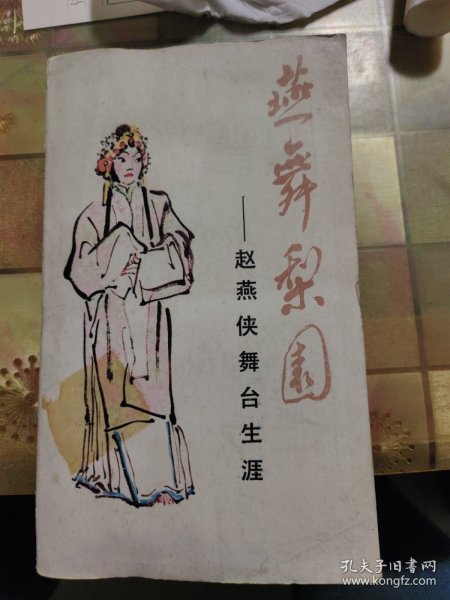 燕舞梨园
——赵燕侠舞台生涯
孔夫子旧书网
www.kongfz.com